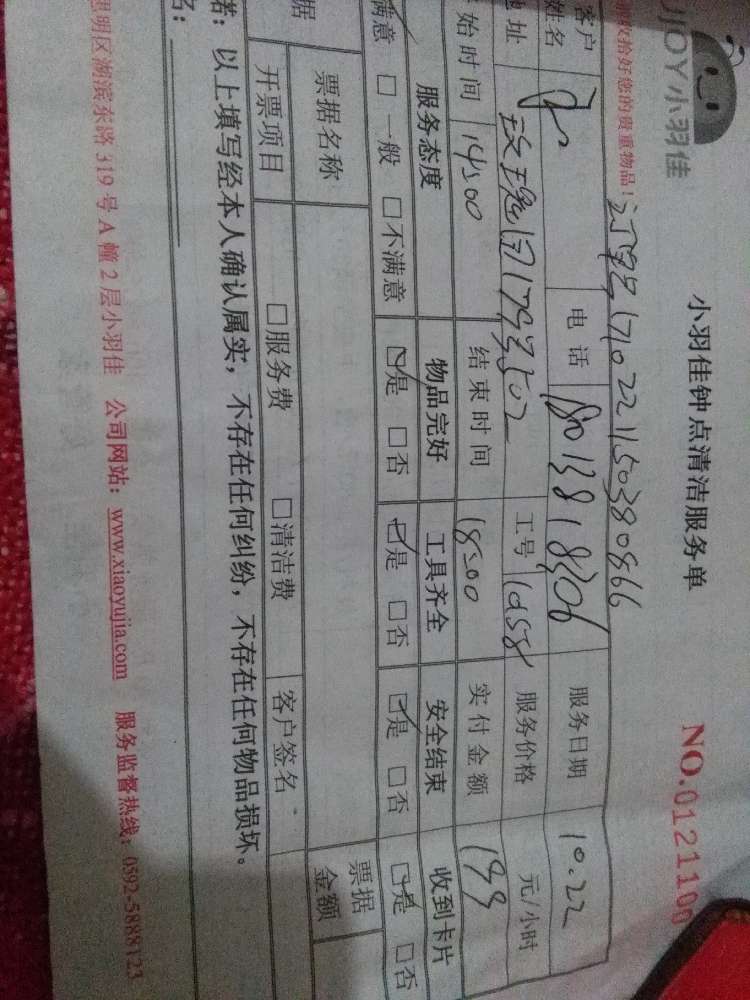 JOY小羽佳
小羽佳钟点清洁服务单
NO.0121100
收拾好您的贵重物品!
171022115038086
客户姓名
电话
服务日期 10.22
地址 玫瑰园
工号 1058
服务价格 元/小时
始时间 14:00
结束时间 18:00
实付金额 199
服务态度 物品完好 工具齐全 安全结束 收到卡片
满意 □一般 □不满意 □是 □否 □是 □否 □是 □否 □是 □否
据 票据名称 票据金额
开票项目 □服务费 □清洁费 客户签名
诺:以上填写经本人确认属实,不存在任何纠纷,不存在任何物品损坏。
名:
思明区湖滨东路319号A幢2层小羽佳 公司网站:www.xiaoyujia.com 服务监督热线:0592-5888123